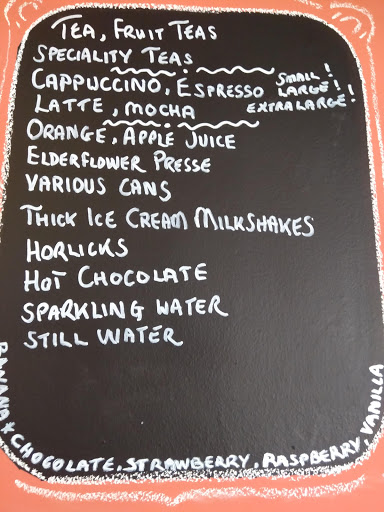 TEA, FRUIT TEAS
SPECIALITY TEAS
CAPPUCCINO, ESPRESSO
SMALL!
LARGE!
LATTE, MOCHA
EXTRA LARGE!
ORANGE, APPLE JUICE
ELDERFLOWER PRESSE
VARIOUS CANS
THICK ICE CREAM MILKSHAKES
HORLICKS
HOT CHOCOLATE
SPARKLING WATER
STILL WATER
BANANA * CHOCOLATE, STRAWBERRY, RASPBERRY, VANILLA